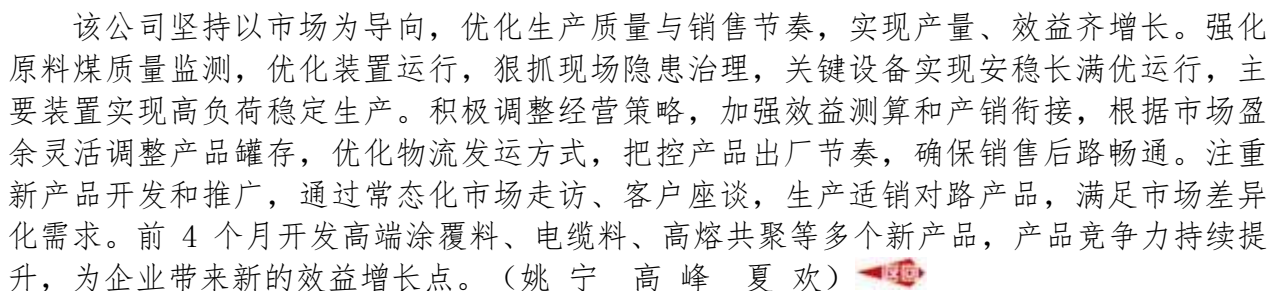 该公司坚持以市场为导向，优化生产质量与销售节奏，实现产量、效益齐增长。强化
原料煤质量监测，优化装置运行，狠抓现场隐患治理，关键设备实现安稳长满优运行，主
要装置实现高负荷稳定生产。积极调整经营策略，加强效益测算和产销衔接，根据市场盈
余灵活调整产品罐存，优化物流发运方式，把控产品出厂节奏，确保销售后路畅通。注重
新产品开发和推广，通过常态化市场走访、客户座谈，生产适销对路产品，满足市场差异
化需求。前 4 个月开发高端涂覆料、电缆料、高熔共聚等多个新产品，产品竞争力持续提
升，为企业带来新的效益增长点。（姚 宁　高 峰　夏 欢）